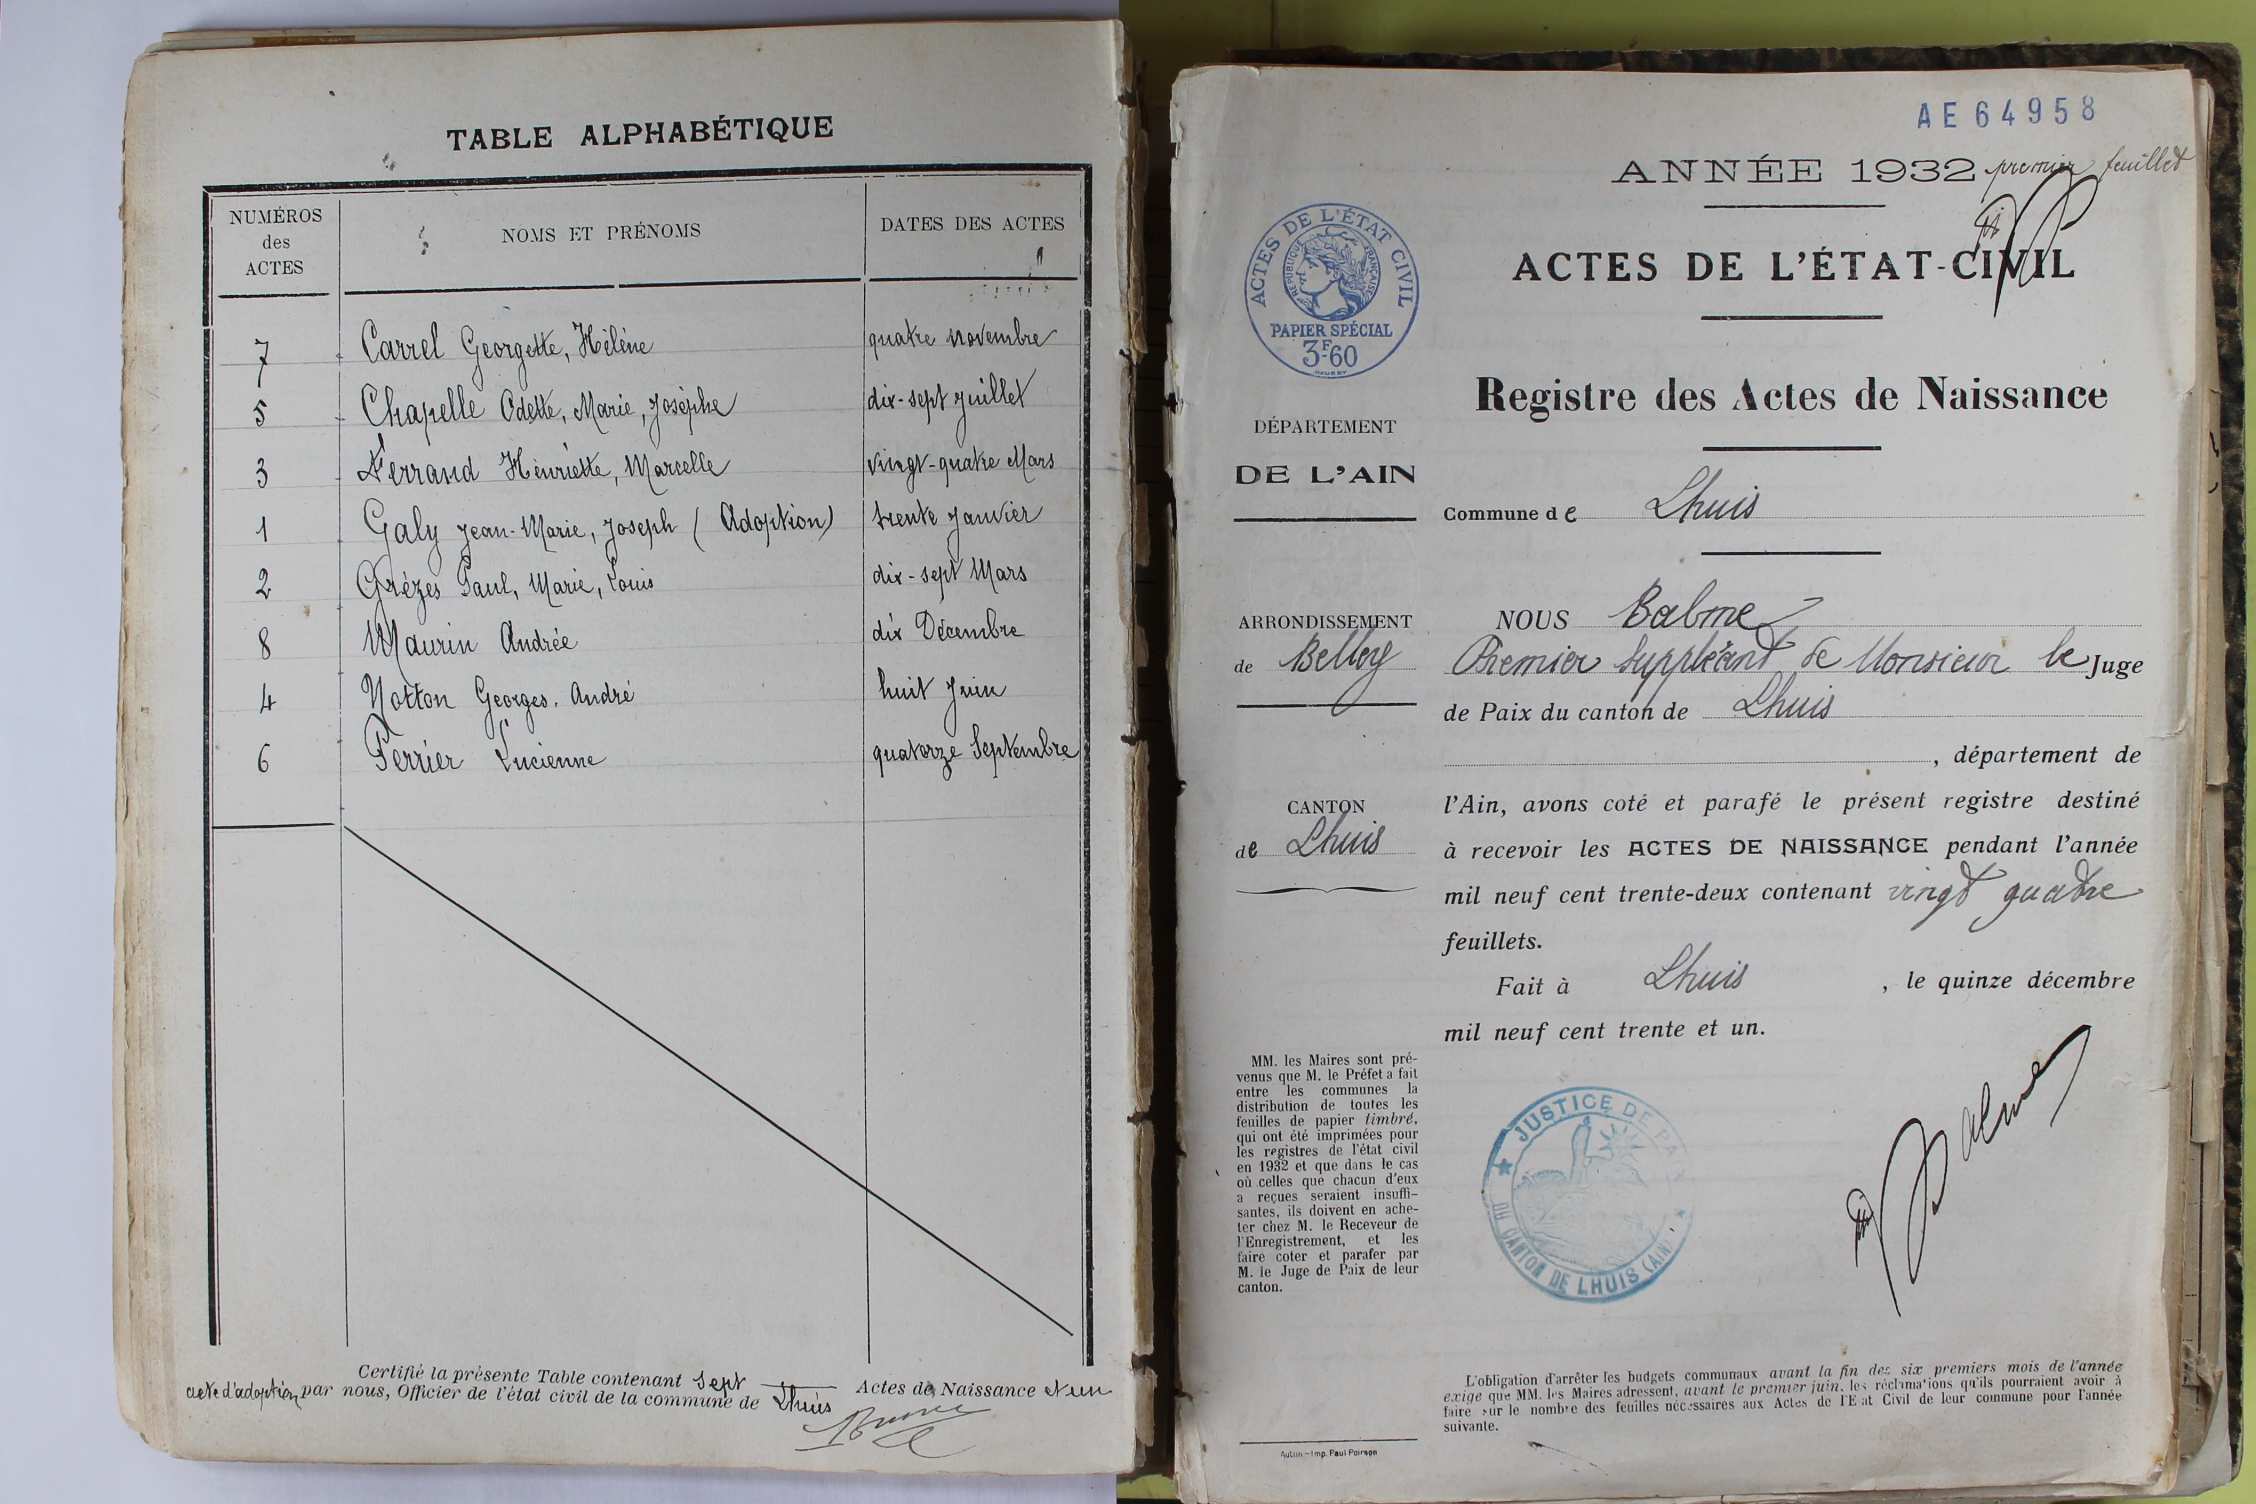 TABLE ALPHABÉTIQUE
NUMÉROS des ACTES
NOMS ET PRÉNOMS
DATES DES ACTES
7 Carrel Georgette, Hélène quatre novembre
5 Chapelle Odette, Marie, Josèphe dix-sept Juillet
3 Ferrand Henriette, Marcelle vingt-quatre Mars
1 Galy Jean-Marie, Joseph (Adoption) trente Janvier
2 Grézes Paul, Marie, Louis dix-sept Mars
8 Maurin Andrée dix Décembre
4 Notton Georges. André huit Juin
6 Perrier Lucienne quatorze Septembre
Certifié la présente Table contenant sept Actes de Naissance et un
acte d'adoption par nous, Officier de l'état civil de la commune de Lhuis
AE 64958
ANNÉE 1932 premier feuillet
ACTES DE L'ÉTAT-CIVIL
ACTES DE L'ÉTAT CIVIL
RÉPUBLIQUE FRANÇAISE
PAPIER SPÉCIAL
3F.60
Registre des Actes de Naissance
DÉPARTEMENT
DE L'AIN
Commune de Lhuis
ARRONDISSEMENT
de Belley
CANTON
de Lhuis
NOUS Balme
Premier Suppléant de Monsieur le Juge
de Paix du canton de Lhuis
, département de
l'Ain, avons coté et parafé le présent registre destiné
à recevoir les ACTES DE NAISSANCE pendant l'année
mil neuf cent trente-deux contenant vingt quatre
feuillets.
Fait à Lhuis , le quinze décembre
mil neuf cent trente et un.
Balme
JUSTICE DE PAIX
DU CANTON DE LHUIS (AIN)
MM. les Maires sont pré-
venus que M. le Préfet a fait
entre les communes la
distribution de toutes les
feuilles de papier timbré,
qui ont été imprimées pour
les registres de l'état civil
en 1932 et que dans le cas
où celles que chacun d'eux
a reçues seraient insuffi-
santes, ils doivent en ache-
ter chez M. le Receveur de
l'Enregistrement, et les
faire coter et parafer par
M. le Juge de Paix de leur
canton.
L'obligation d'arrêter les budgets communaux avant la fin des six premiers mois de l'année
exige que MM. les Maires adressent, avant le premier juin, les réclamations qu'ils pourraient avoir à
faire sur le nombre des feuilles nécessaires aux Actes de l'Etat Civil de leur commune pour l'année
suivante.
Autun - Imp. Paul Poirson